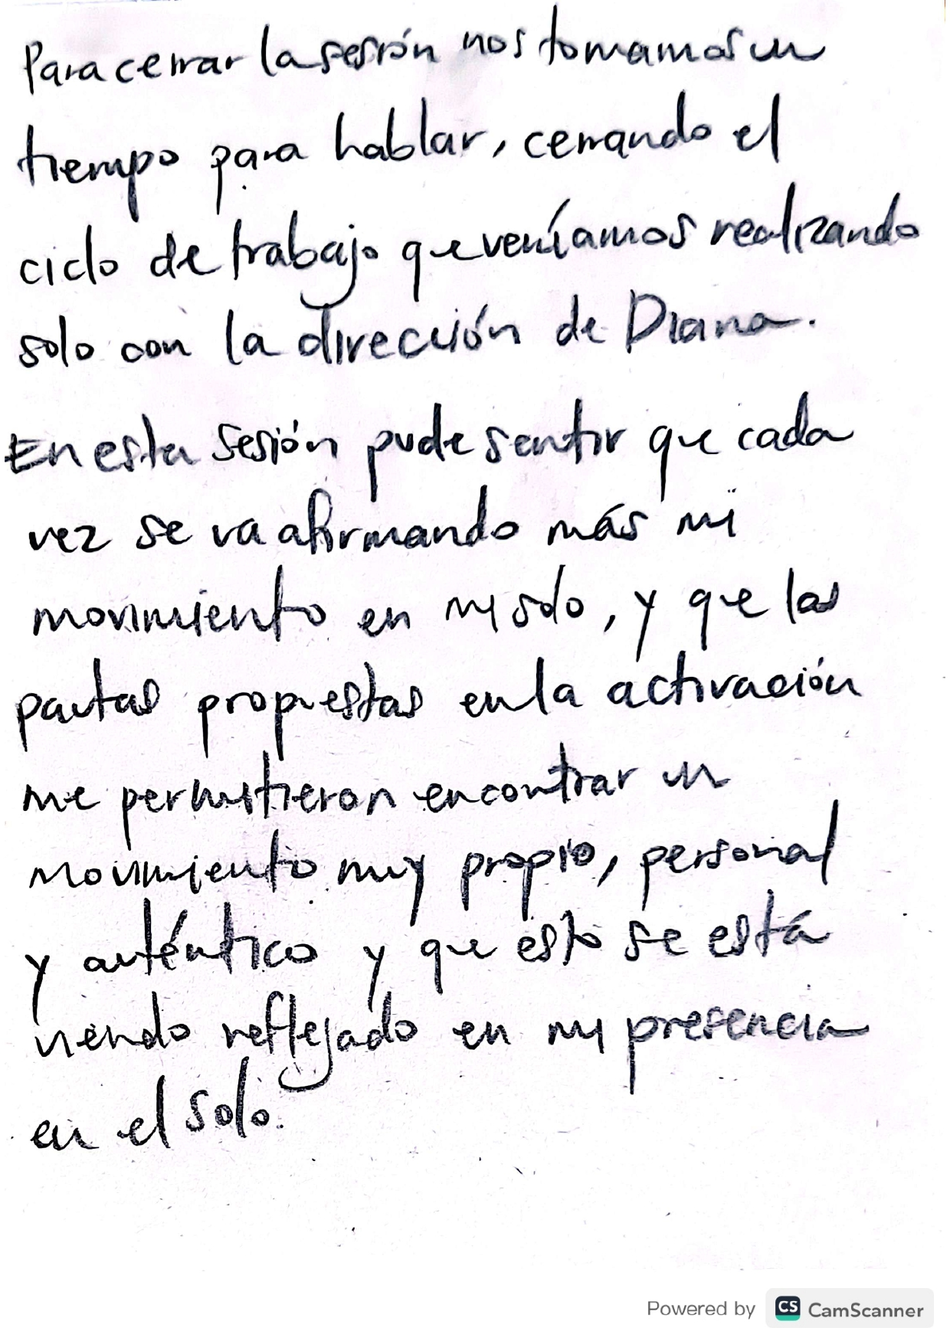 Para cerrar la sesión nos tomamos un
tiempo para hablar, cerrando el
ciclo de trabajo que veníamos realizando
solo con la dirección de Diana.
En esta sesión pude sentir que cada
vez se va afirmando más mi
movimiento en mi solo, y que las
pautas propuestas en la activación
me permitieron encontrar un
movimiento muy propio, personal
y auténtico y que esto se está
viendo reflejado en mi presencia
en el solo.
Powered by CS CamScanner